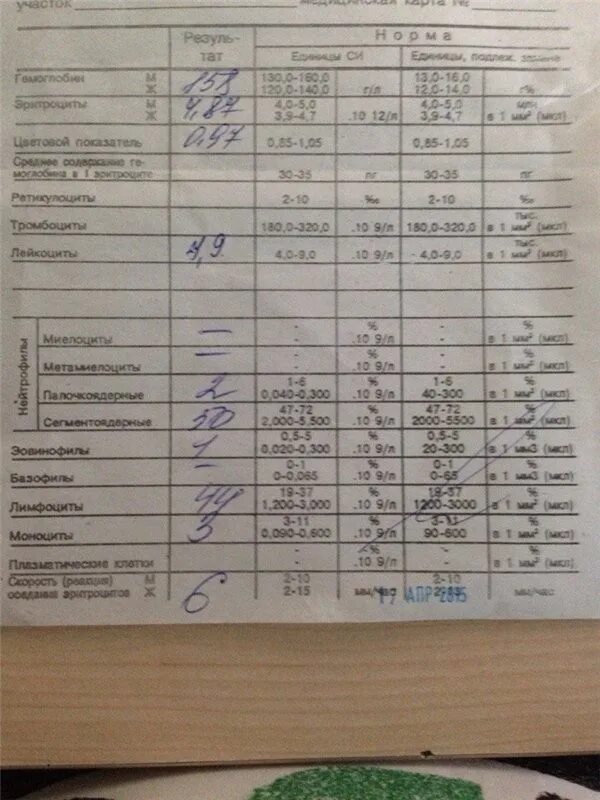 участок медицинская карта №
Резуль-тат Норма
Единицы СИ Единицы, подлеж. замене
Гемоглобин М 158 130,0-160,0 г/л 13,0-16,0 г%
Ж 120,0-140,0 12,0-14,0
Эритроциты М 4,87 4,0-5,0 .10 12/л 4,0-5,0 млн
Ж 3,9-4,7 3,9-4,7 в 1 мм³ (мкл)
Цветовой показатель 0,97 0,85-1,05 0,85-1,05
Среднее содержание ге-
моглобина в 1 эритроците 30-35 пг 30-35 пг
Ретикулоциты 2-10 ‰ 2-10 ‰
Тромбоциты 180,0-320,0 .10 9/л 180,0-320,0 тыс. в 1 мм³ (мкл)
Лейкоциты 4,0-9,0 .10 9/л 4,0-9,0 тыс. в 1 мм³ (мкл)
Нейтрофилы
Миелоциты — - % - %
- .10 9/л - в 1 мм³ (мкл)
Метамиелоциты — - % - %
- .10 9/л - в 1 мм³ (мкл)
Палочкоядерные 2 1-6 % 1-6 %
0,040-0,300 .10 9/л 40-300 в 1 мм³ (мкл)
Сегментоядерные 50 47-72 % 47-72 %
2,000-5,500 .10 9/л 2000-5500 в 1 мм³ (мкл)
Эозинофилы 1 0,5-5 % 0,5-5 %
0,020-0,300 .10 9/л 20-300 в 1 мм3 (мкл)
Базофилы — 0-1 % 0-1 %
0-0,065 .10 9/л 0-65 в 1 мм3 (мкл)
Лимфоциты 44 19-37 % 19-37 %
1,200-3,000 .10 9/л 1200-3000 в 1 мм³ (мкл)
Моноциты 3 3-11 % 3-11 %
0,090-0,600 .10 9/л 90-600 в 1 мм³ (мкл)
Плазматические клетки - % - %
- .10 9/л - в 1 мм³ (мкл)
Скорость (реакция) М 6 2-10 мм/час 2-10 мм/час
оседания эритроцитов Ж 2-15 2-15
17 АПР 2015